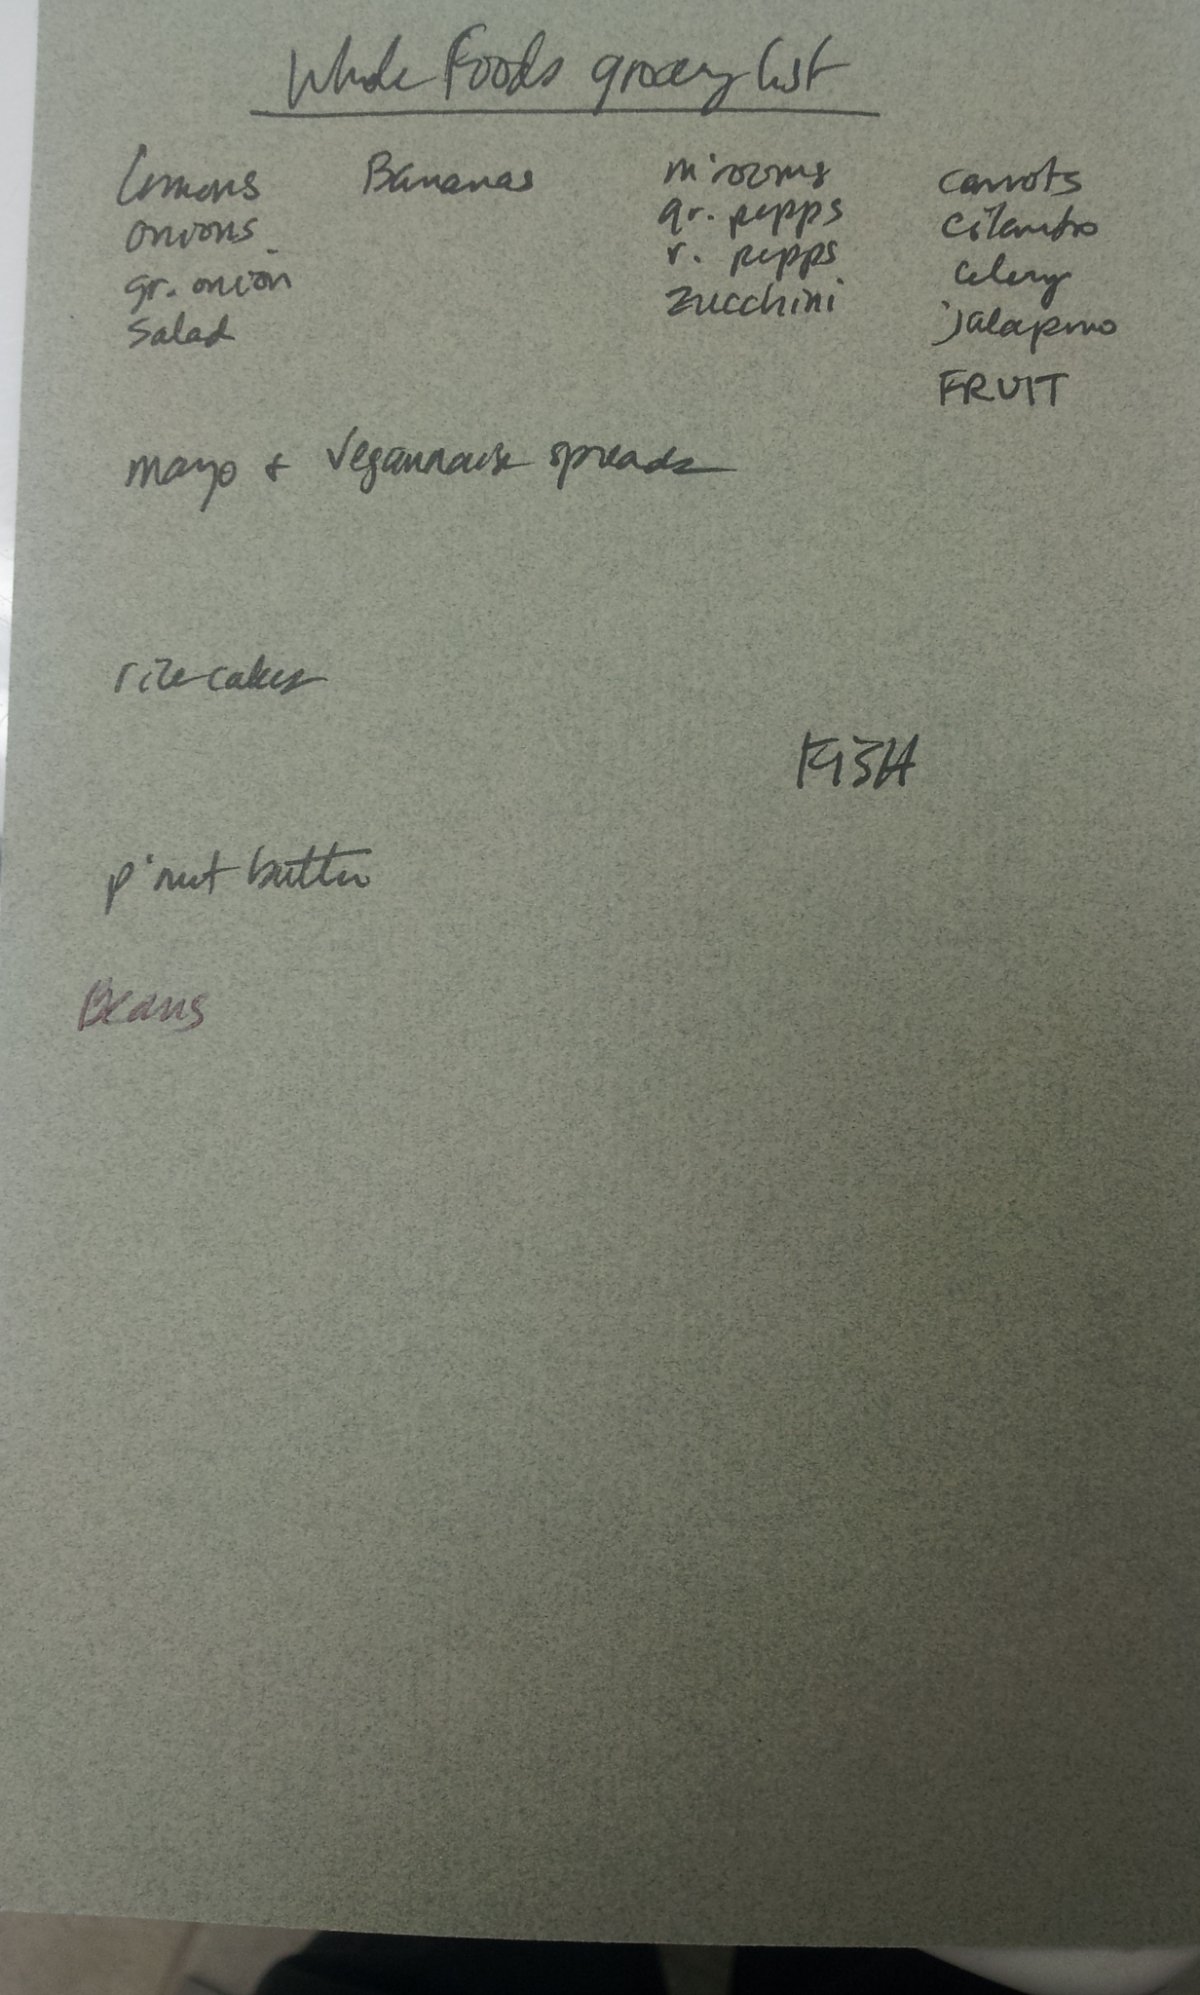 Whole Foods grocery list
Lemons Bananas m'rooms carrots
onions gr. pepps cilantro
gr. onion r. pepps celery
salad zucchini jalapeno
FRUIT
mayo + Vegannaise spreads
rice cakes
FISH
p'nut butter
Beans